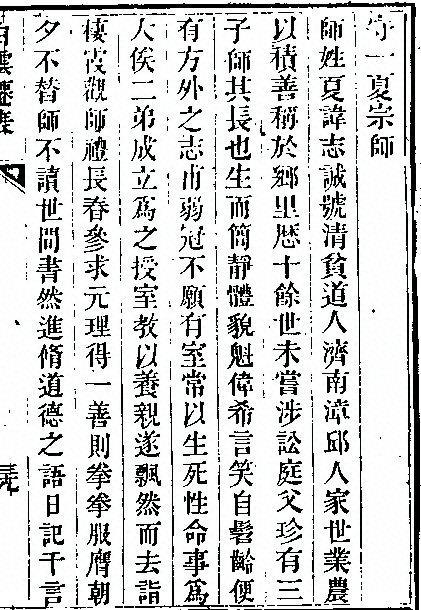 守一夏宗師
師姓夏諱志誠號清貧道人濟南漳邱人家世業農
以積善稱於鄉里歷十餘世未嘗涉訟庭父珍有三
子師其長也生而簡靜體貌魁偉希言笑自髫齡便
有方外之志甫弱冠不願有室常以生死性命事爲
大俟二弟成立爲之授室教以養親遂飄然而去詣
棲霞觀師禮長春參求元理得一善則拳拳服膺朝
夕不替師不讀世間書然進脩道德之語日記千言
白雲仙表